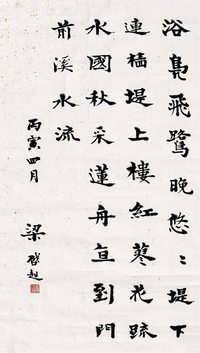 浴鳧飛鷺晚悠〻堤下
連檣堤上樓紅蓼花疏
水國秋采蓮舟直到門
前溪水流
丙寅四月
梁啟超